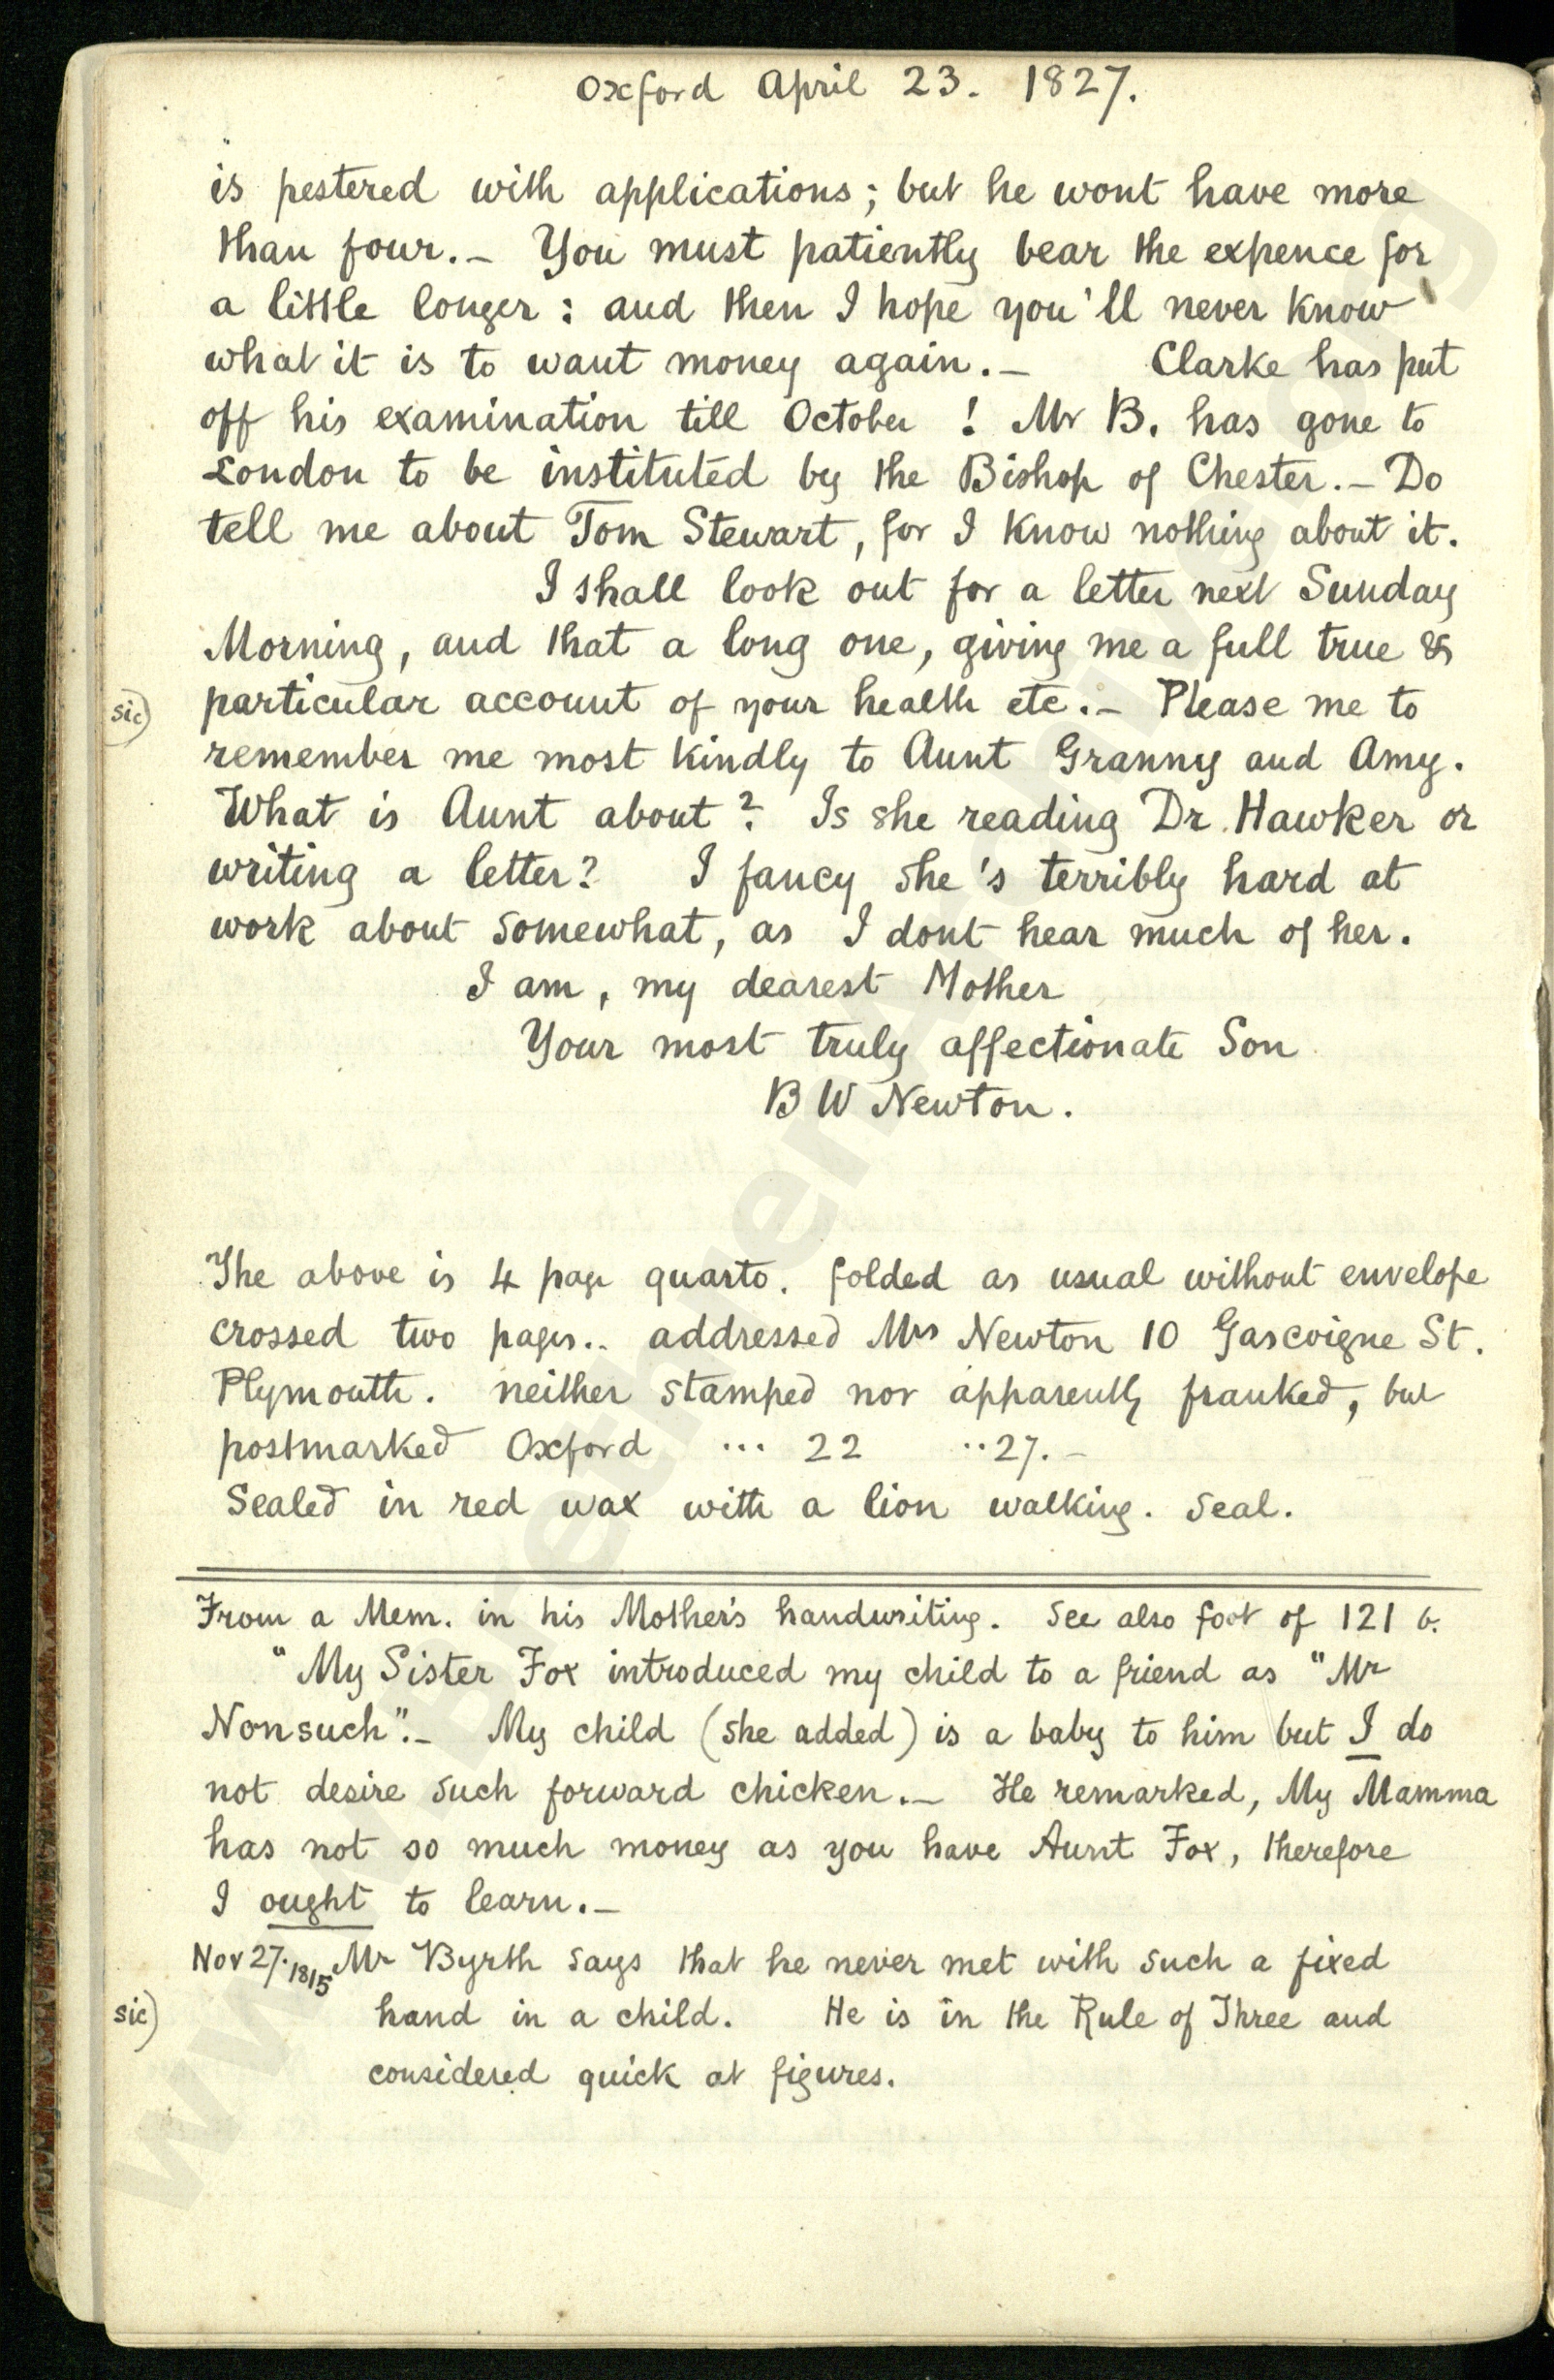 Oxford April 23. 1827.
is pestered with applications; but he wont have more
than four.— You must patiently bear the expence for
a little longer: and then I hope you'll never know
what it is to want money again.— Clarke has put
off his examination till October! Mr B. has gone to
London to be instituted by the Bishop of Chester.— Do
tell me about Tom Stewart, for I know nothing about it.
I shall look out for a letter next Sunday
Morning, and that a long one, giving me a full true &
sic) particular account of your health etc.— Please me to
remember me most kindly to Aunt Granny and Amy.
What is Aunt about? Is she reading Dr. Hawker or
writing a letter? I fancy she's terribly hard at
work about somewhat, as I dont hear much of her.
I am, my dearest Mother
Your most truly affectionate Son
B W Newton.
The above is 4 page quarto. folded as usual without envelope
crossed two pages.. addressed Mrs Newton 10 Gascoigne St.
Plymouth. neither stamped nor apparently franked, but
postmarked Oxford ... 22 ..27.—
Sealed in red wax with a lion walking. seal.
From a Mem. in his Mother's handwriting. See also foot of 121 b.
"My Sister Fox introduced my child to a friend as "Mr
Nonsuch".— My child (she added) is a baby to him but I do
not desire such forward chicken.— He remarked, My Mamma
has not so much money as you have Aunt Fox, therefore
I ought to learn.—
Nov 27. 1815 Mr Byrth says that he never met with such a fixed
sic) hand in a child. He is in the Rule of Three and
considered quick at figures.